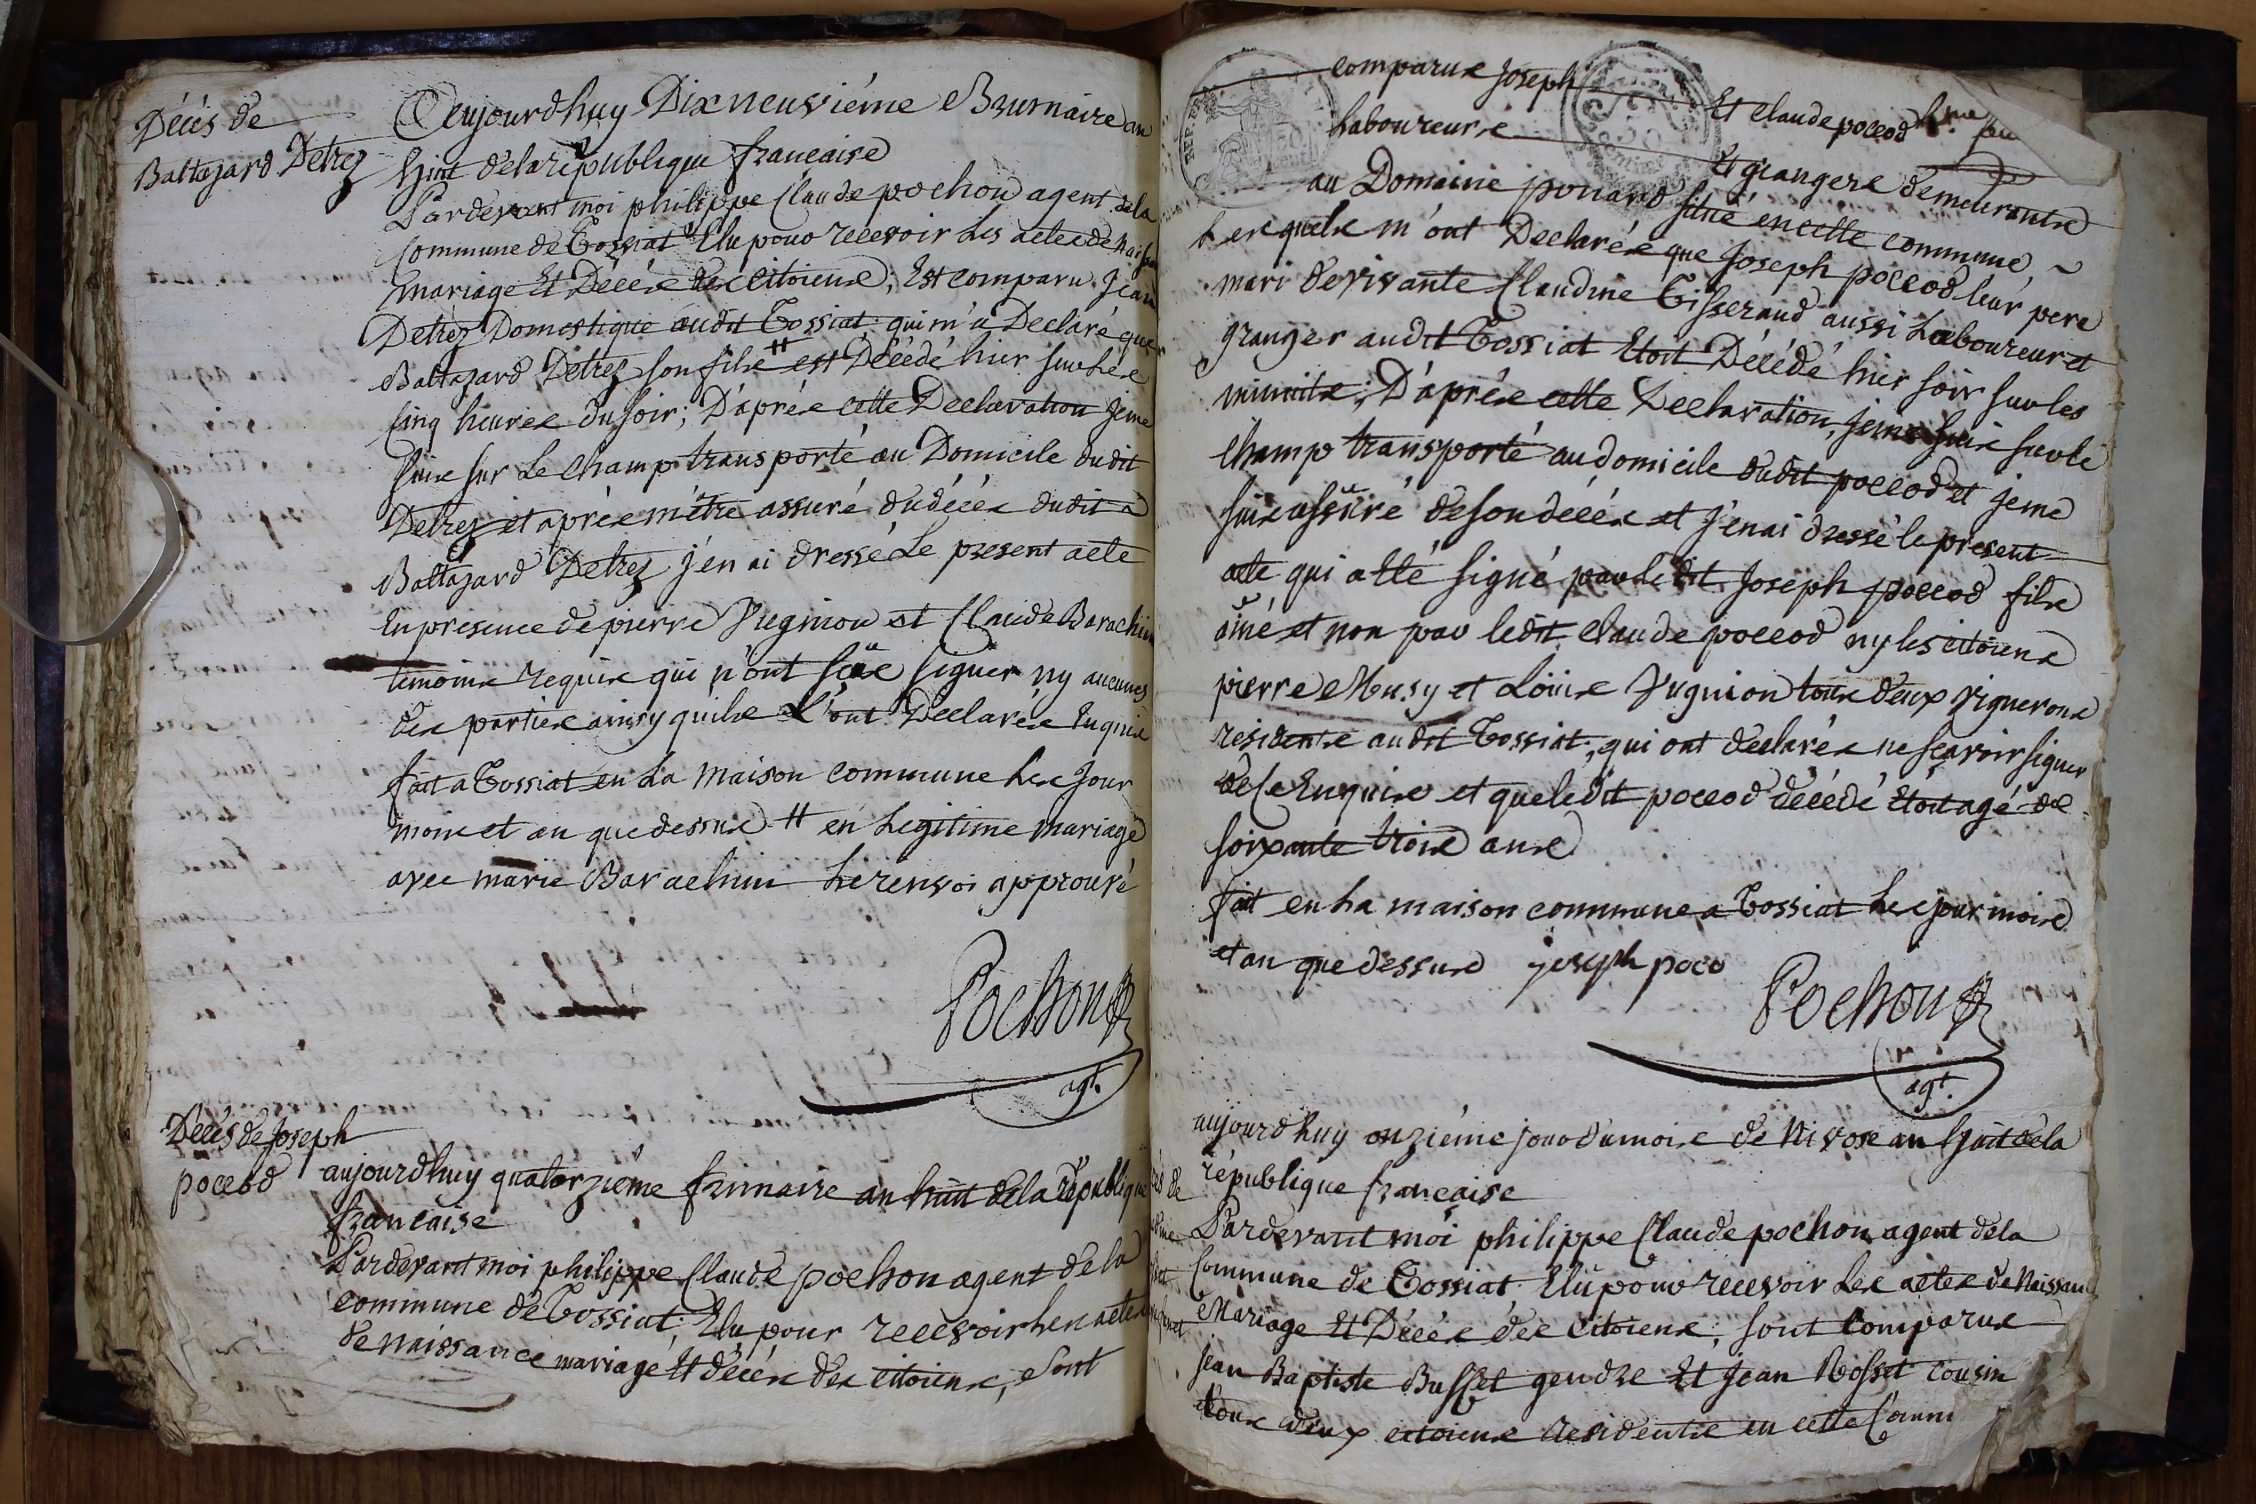 Décés de
Baltazard Detrez
Aujourdhuy Dixneuviéme Brumaire an
huit delarépublique francaise
Pardevant moi philippe Claude pochon agent dela
Commune de Tossiat Elu pour recevoir Les actes de
mariage Et Décés des Citoiens, Est comparu Jean
Detrez Domestique audit Tossiat qui m'a Declaré que
Baltazard Detrez son fils # est Décédé hier sur Les
Cinq heures du soir; D'aprés cette Declaration Jeme
suis sur Le champ transporté au Domicile dudit
Detrez et aprés m'étre assuré dudécés dudit
Baltazard Detrez j'en ai dressé Le present acte
En presence de pierre Vugnion et Claude Barachin
temoins requis qui n'ont sçus signer ny aucunes
des parties ainsy quils L'ont Declarés Enquis
fait a Tossiat en La maison commune Les Jour
mois et an que dessus # en Legitime mariage
avec marie Barachin Le renvoi approuvé
Pochon
agt.
Décés de Joseph
poccod
aujourdhuy quatorziéme frimaire an huit dela république
francaise
Pardevant moi philippe Claude pochon agent de la
commune de Tossiat, Elu pour recevoir Les actes
de naissance mariage Et décés des citoiens, sont
comparus Joseph Et Claude poccod
Laboureurs Et grangers demeurants
au Domaine ponard situé en cette commune
Lesquels m'ont Declarés que Joseph poccod leur pere
mari devivante Claudine Tisserand aussi Laboureur et
granger audit Tossiat Etoit Décédé hier soir sur les
minuits; D'aprés cette Declaration, jeme suis sur le
champ transporté au domicile dudit poccod et jeme
suis assuré deson décés et j'enai dressé le present
acte qui a été signé par le dit Joseph poccod fils
ainé et non par ledit Claude poccod ny les citoiens
pierre Musy et Loüis Vugnion tous deux vignerons
residents audit Tossiat, qui ont declarés ne sçavoir signer
de ce Enquis et queledit poccod décédé étoit agé de
soixante trois ans
fait en La maison commune a Tossiat Les jour mois
et an que dessus joseph poco
Pochon
agt.
aujourdhuy onziéme jour dumois de Nivose an huit dela
république francaise
Pardevant moi philippe Claude pochon agent dela
Commune de Tossiat Elu pour recevoir Les actes de Naissan
Mariage Et Décés des Citoiens, sont Comparus
Jean Baptiste Buffet gendre Et Jean Rosset cousin
tous deux citoiens residents en cette Comm